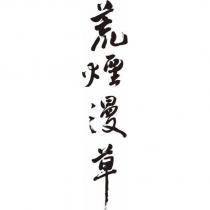 荒煙漫草